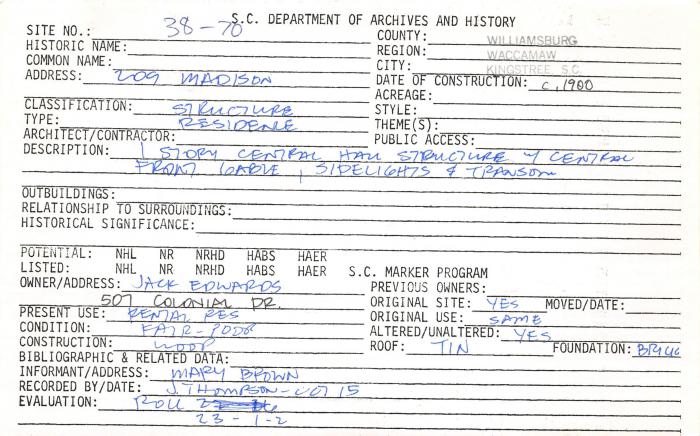 S.C. DEPARTMENT OF ARCHIVES AND HISTORY
SITE NO.: 38-70
COUNTY: WILLIAMSBURG
HISTORIC NAME:
REGION: WACCAMAW
COMMON NAME:
CITY: KINGSTREE S.C.
ADDRESS: 209 MADISON
DATE OF CONSTRUCTION: c. 1900
ACREAGE:
CLASSIFICATION: STRUCTURE
STYLE:
TYPE: RESIDENCE
THEME(S):
ARCHITECT/CONTRACTOR:
PUBLIC ACCESS:
DESCRIPTION: 1 STORY CENTRAL HALL STRUCTURE CENTRAL
FRONT GABLE, SIDELIGHTS & TRANSOM
OUTBUILDINGS:
RELATIONSHIP TO SURROUNDINGS:
HISTORICAL SIGNIFICANCE:
POTENTIAL: NHL NR NRHD HABS HAER
LISTED: NHL NR NRHD HABS HAER S.C. MARKER PROGRAM
OWNER/ADDRESS: JACK EDWARDS
PREVIOUS OWNERS:
507 COLONIAL DR.
ORIGINAL SITE: YES MOVED/DATE:
PRESENT USE: RENTAL RES
ORIGINAL USE: SAME
CONDITION: FAIR-POOR
ALTERED/UNALTERED: YES
CONSTRUCTION: WOOD
ROOF: TIN FOUNDATION: BRICK
BIBLIOGRAPHIC & RELATED DATA:
INFORMANT/ADDRESS: MARY BROWN
RECORDED BY/DATE: J. THOMPSON - OCT 15
EVALUATION: ROLL
23-1-2